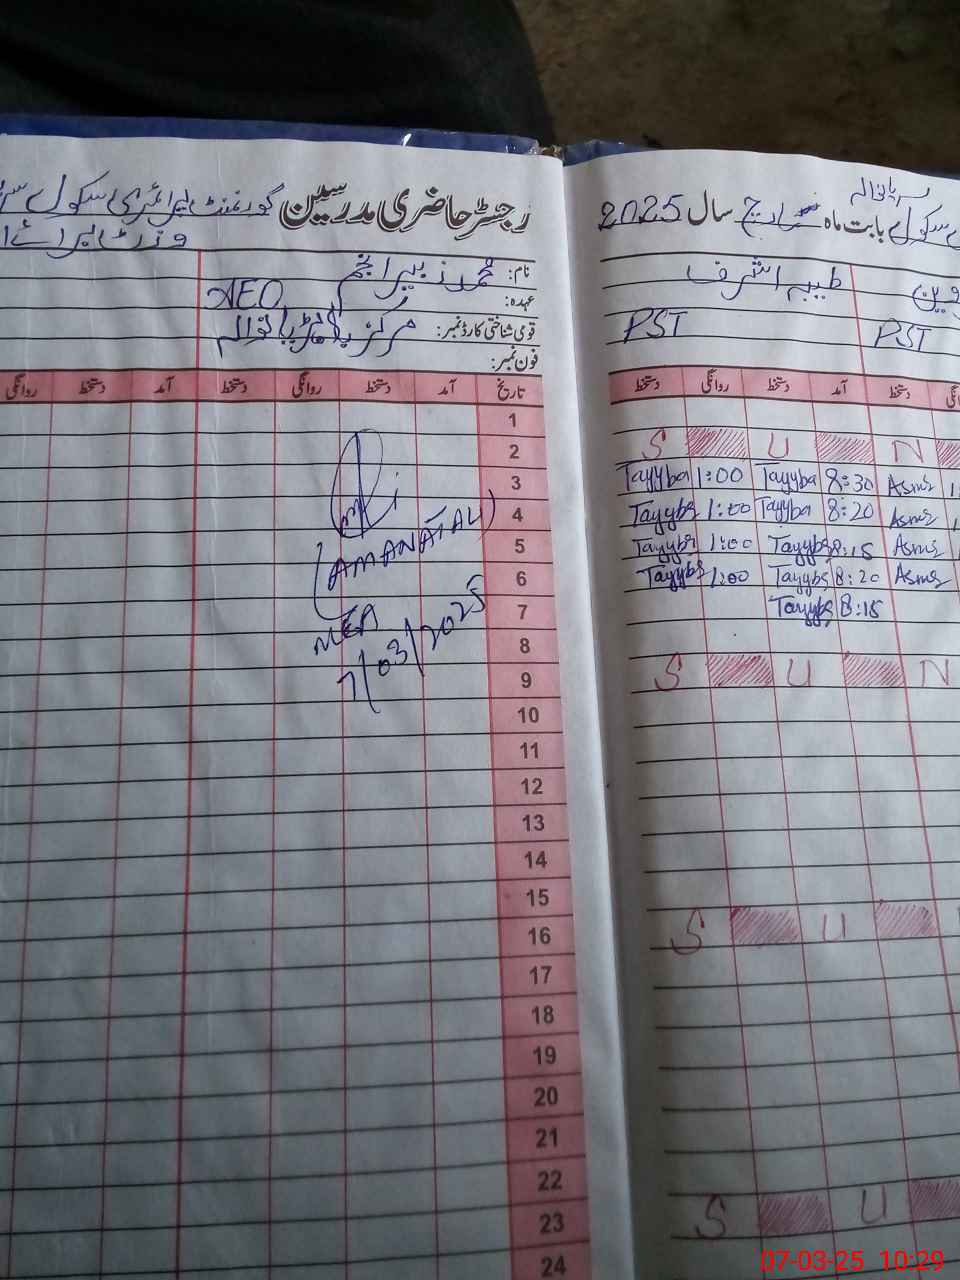 رجسٹر حاضری مدرسین گورنمنٹ پرائمری سکول
نام: محمد زبیر انجم
عہدہ: AEO
قومی شناختی کارڈ نمبر: مرکز
فون نمبر:
تاریخ آمد دستخط روانگی دستخط آمد دستخط روانگی
1
2
3
4
5
6
7
8
9
10
11
12
13
14
15
16
17
18
19
20
21
22
23
24
(AMANAT ALI)
MEA
7/03/2025
سکول بابت ماہ مارچ سال 2025
طیبہ اشرف
PST PST
دستخط روانگی دستخط آمد دستخط
S U N
Tayyba 1:00 Tayyba 8:30 Asma
Tayyba 1:00 Tayyba 8:20 Asma
Tayyba 1:00 Tayyba 8:15 Asma
Tayyba 1:00 Tayyba 8:20 Asma
Tayyba 8:15
S U N
S U
S U
07-03-25 10:29